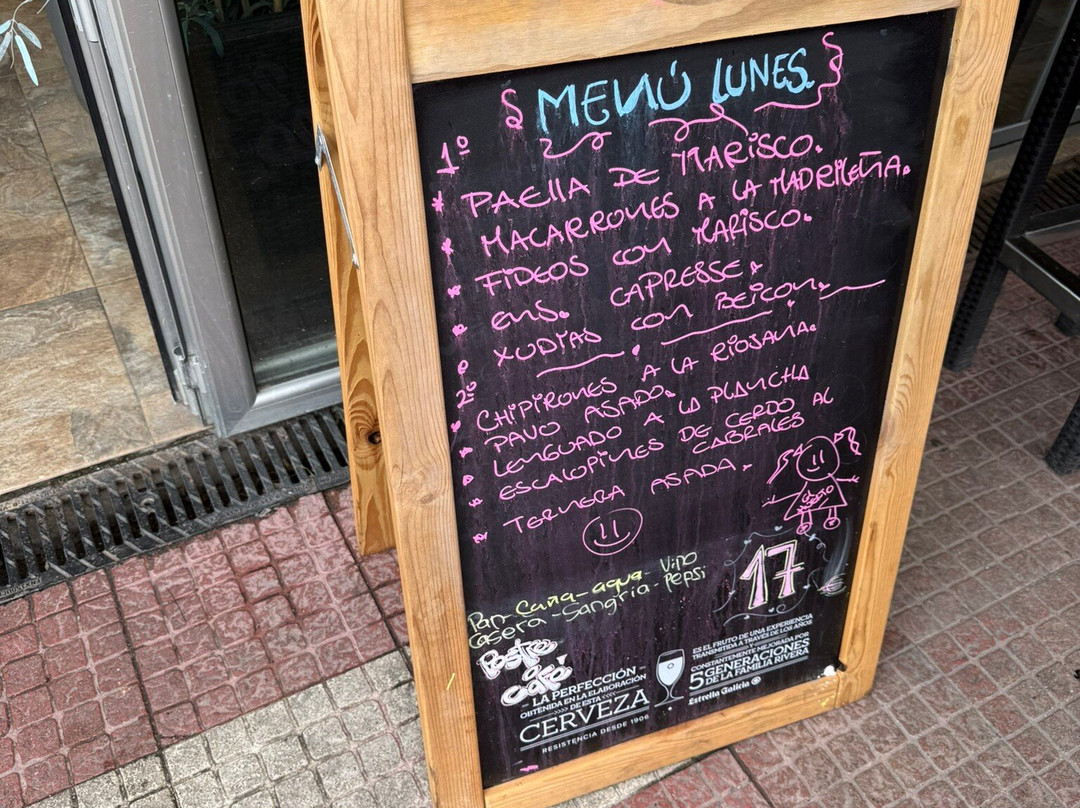 MENÚ LUNES.
1º
* PAELLA DE MARISCO.
* MACARRONES A LA MADRILEÑA.
* FIDEOS CON MARISCO.
* ENS. CAPRESSE.
* XUDÍAS CON BEICON.
2º
* CHIPIRONES A LA RIOJANA.
* PAVO ASADO.
* LENGUADO A LA PLANCHA
* ESCALOPINES DE CERDO AL
CABRALES
* TERNERA ASADA.
Pan-Caña-agua-Vino
Casera-Sangria-Pepsi
Postre
o
café
17 €
LA PERFECCIÓN
OBTENIDA EN LA ELABORACIÓN
DE ESTA
CERVEZA
RESISTENCIA DESDE 1906
ES EL FRUTO DE UNA EXPERIENCIA
TRANSMITIDA A TRAVÉS DE LOS AÑOS
Y
CONSTANTEMENTE MEJORADA POR
5 GENERACIONES
DE LA FAMILIA RIVERA
Estrella Galicia